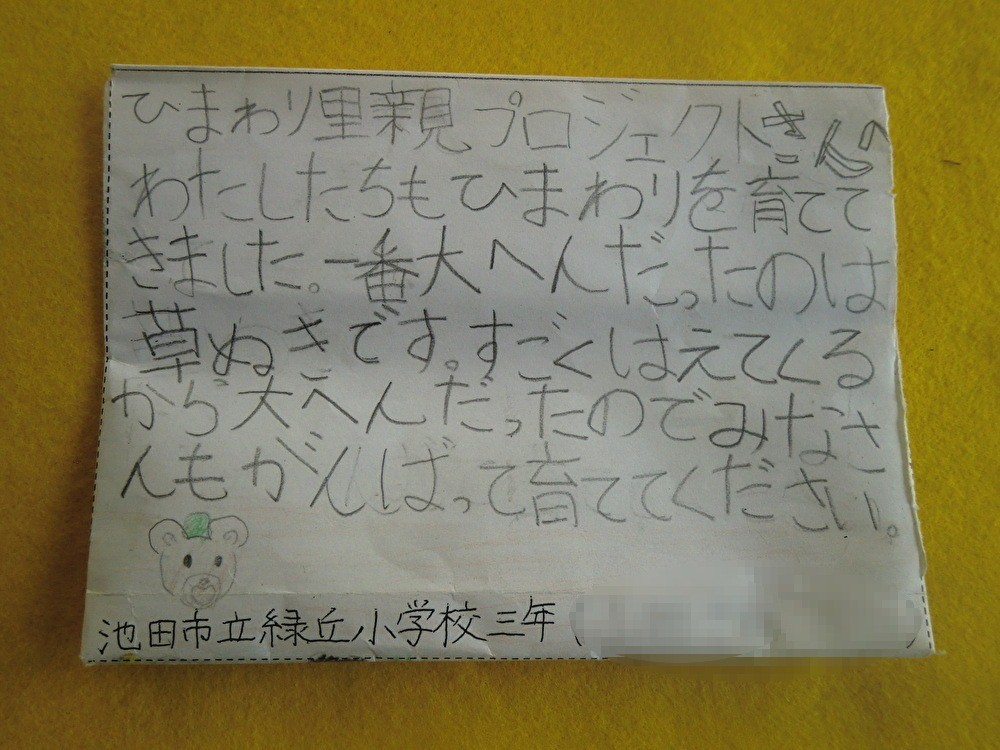 ひまわり里親プロジェクトさんへ
わたしたちもひまわりを育てて
きました。一番大へんだったのは
草ぬきです。すごくはえてくる
から大へんだったのでみなさ
んもがんばって育ててください。
池田市立緑丘小学校三年(